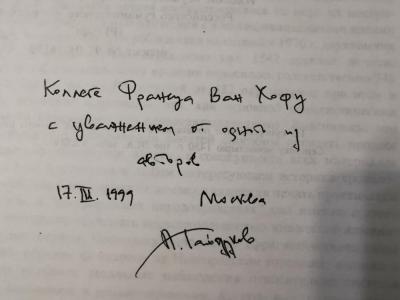 Коллеге Франсуа Ван Хофу
с уважением от одной из
авторов
17.III.1999 Москва
А. Гайдуков